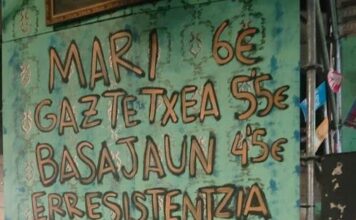 MARI 6€
GAZTETXEA 5'5€
BASAJAUN 4'5€
ERRESISTENTZIA